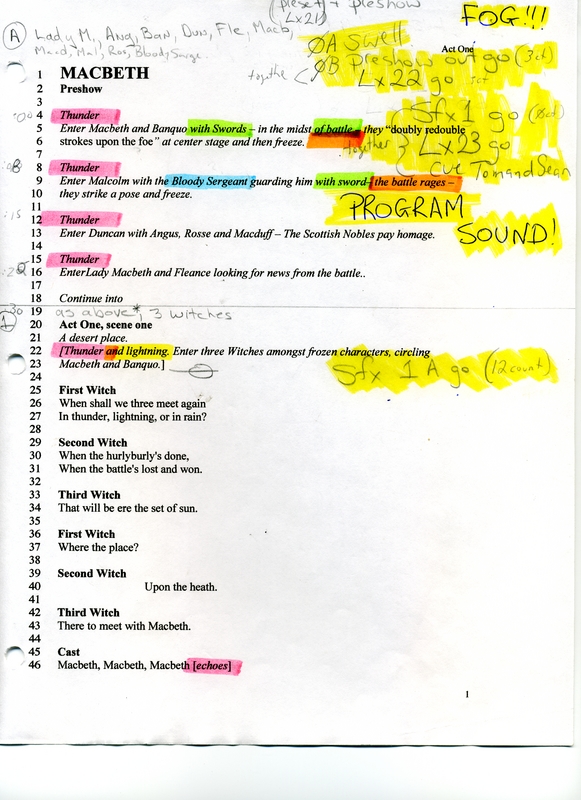 (preset) + preshow
(Lx21)
FOG!!!
A Lady M, Ang, Ban, Dun, Fle, Macb,
Macd, Mal, Ros, Bloody Surge.
ØA Swell
Act One
together ØB Preshow out go (3ct)
Lx 22 go 5ct
1 MACBETH
2 Preshow
3
:00 4 Thunder
Sfx 1 go
5 Enter Macbeth and Banquo with Swords – in the midst of battle – they "doubly redouble
6 strokes upon the foe" at center stage and then freeze.
together Lx 23 go
7
cue Tom and Sean
8 Thunder
9 Enter Malcolm with the Bloody Sergeant guarding him with sword- the battle rages –
10 they strike a pose and freeze.
11
PROGRAM
SOUND!
:15 12 Thunder
13 Enter Duncan with Angus, Rosse and Macduff – The Scottish Nobles pay homage.
14
15 Thunder
16 EnterLady Macbeth and Fleance looking for news from the battle..
17
18 Continue into
:30 19 as above*, 3 witches
1 20 Act One, scene one
21 A desert place.
22 [Thunder and lightning. Enter three Witches amongst frozen characters, circling
23 Macbeth and Banquo.]
Sfx 1A go (12 count)
24
25 First Witch
26 When shall we three meet again
27 In thunder, lightning, or in rain?
28
29 Second Witch
30 When the hurlyburly's done,
31 When the battle's lost and won.
32
33 Third Witch
34 That will be ere the set of sun.
35
36 First Witch
37 Where the place?
38
39 Second Witch
40 Upon the heath.
41
42 Third Witch
43 There to meet with Macbeth.
44
45 Cast
46 Macbeth, Macbeth, Macbeth [echoes]
1